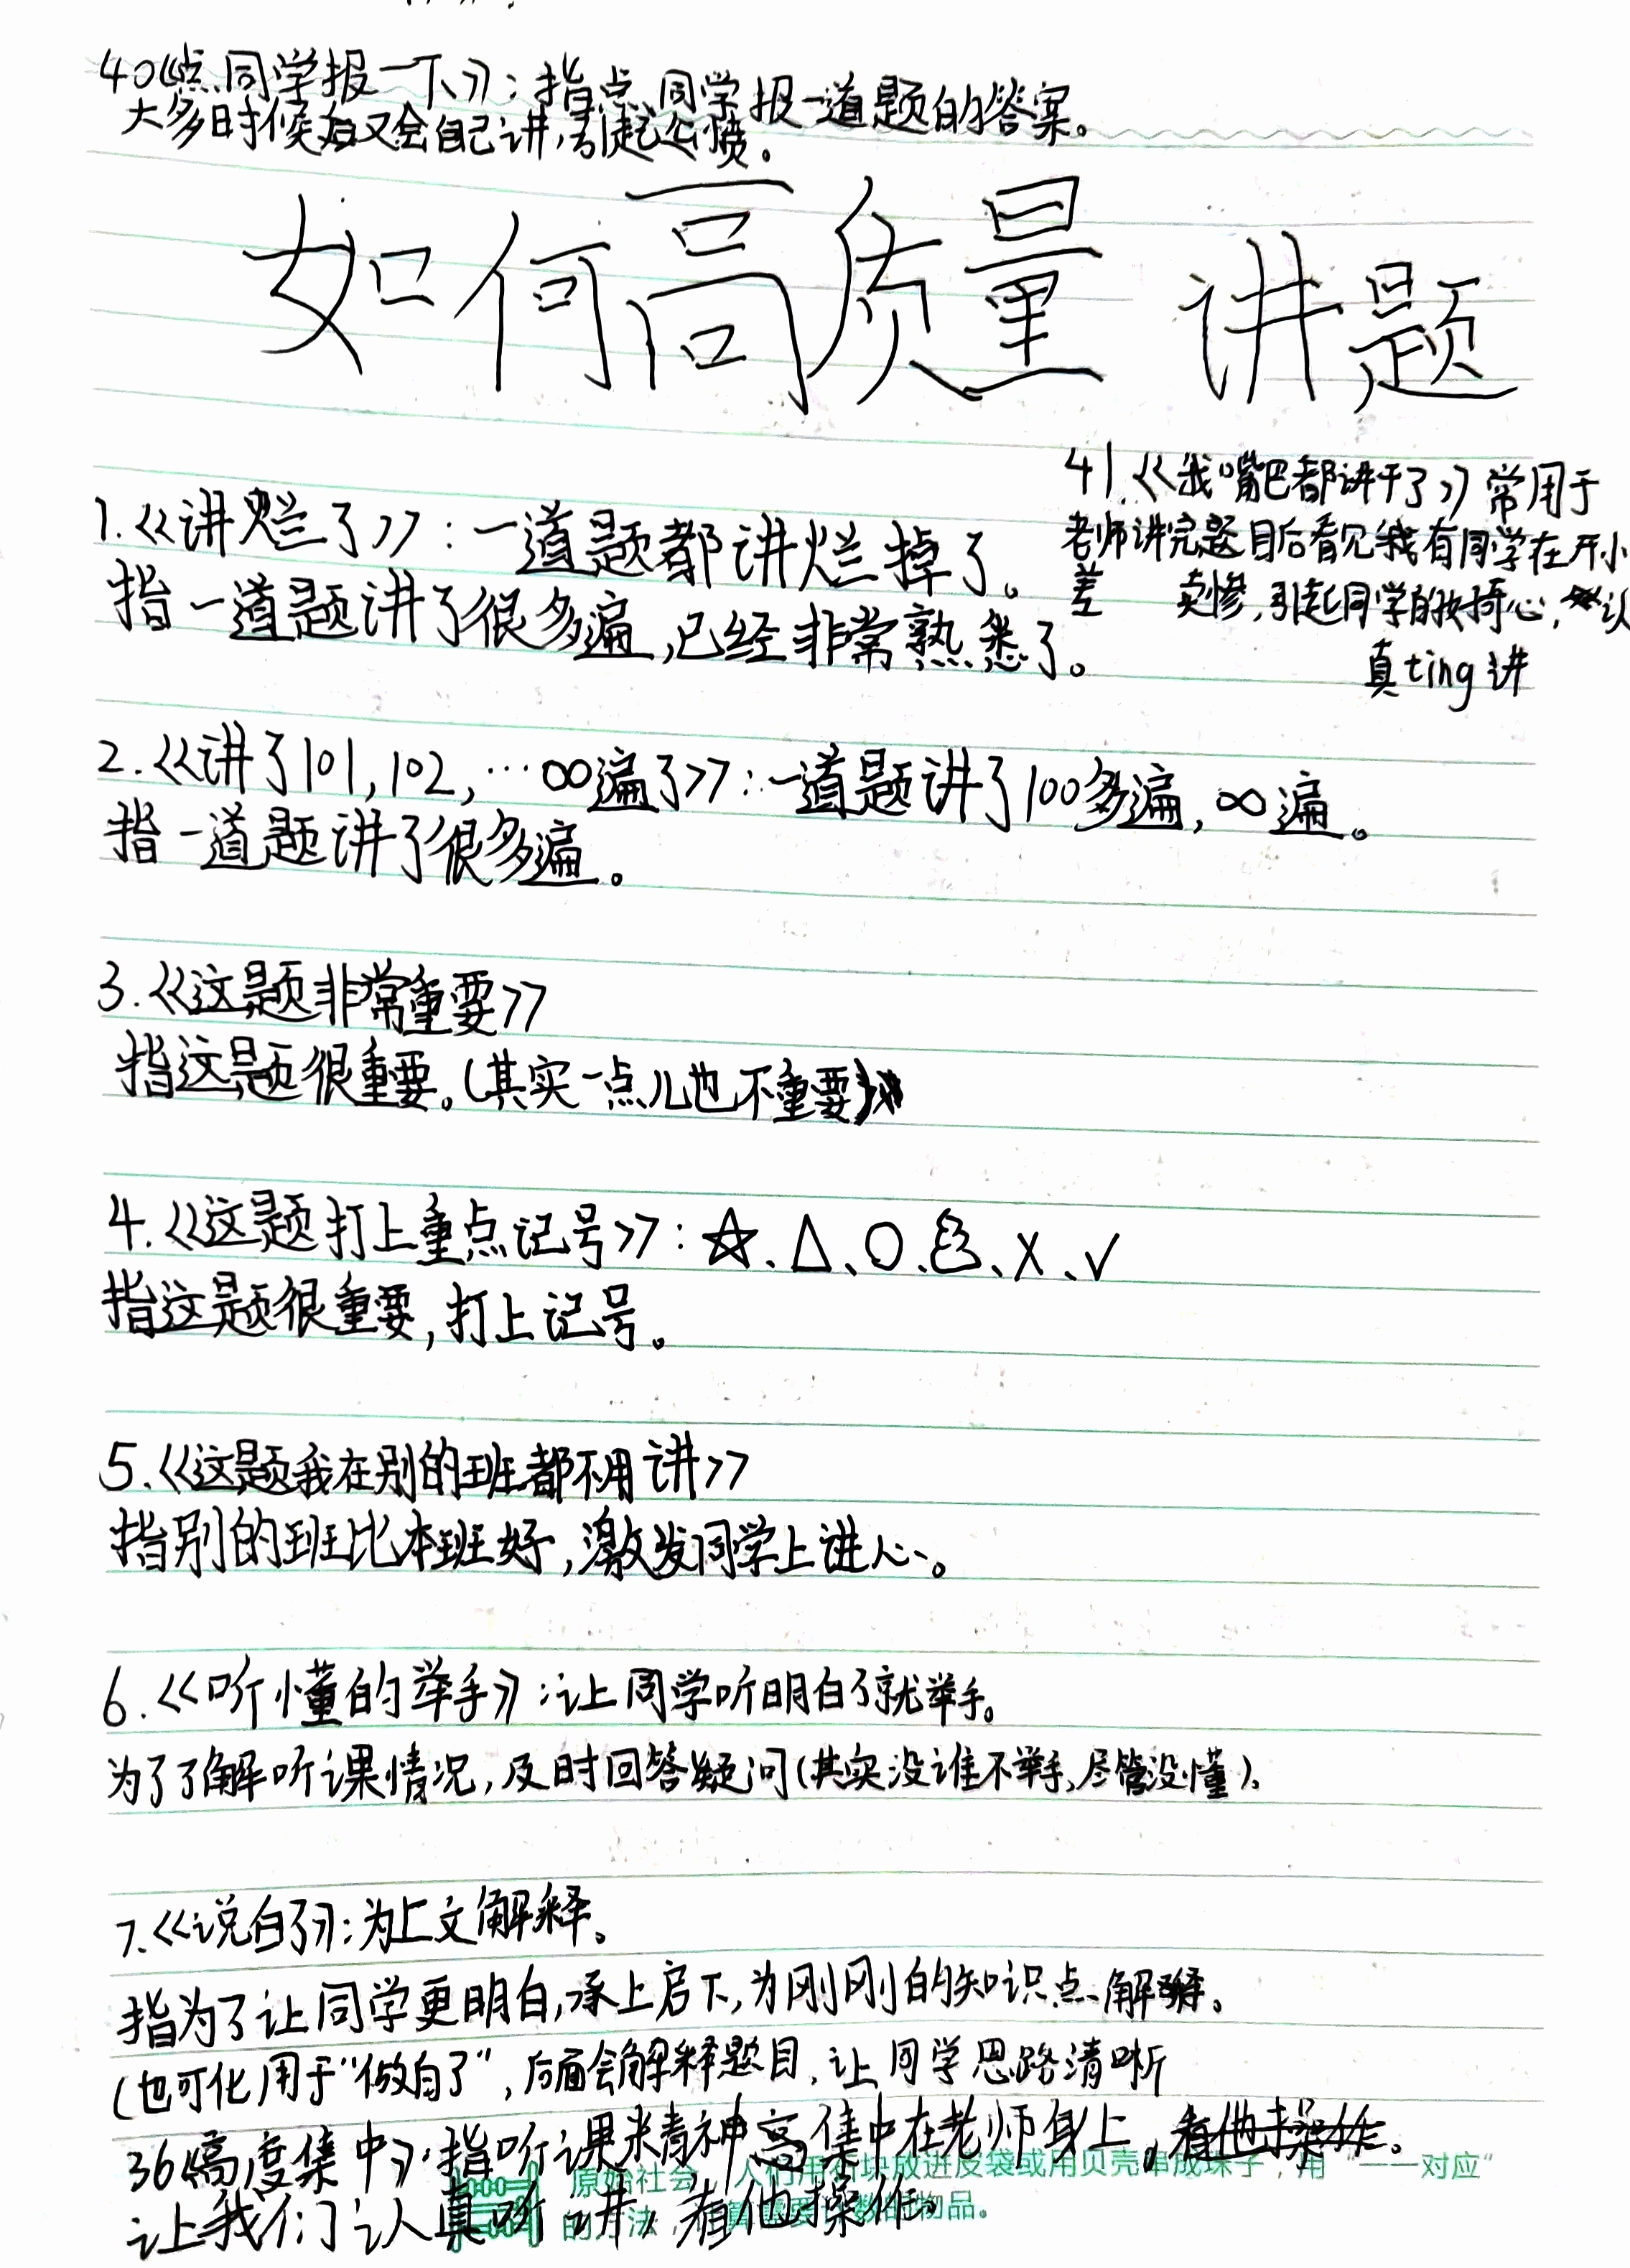 40《点同学报一下》：指点同学报一道题的答案。
大多时候后又会自己讲，引起公愤。
如何高质量讲题
41.《我嘴巴都讲干了》常用于
老师讲完题目后看见我有同学在开小
差 卖惨，引起同学的 心，认
真ting讲
1.《讲烂了》：一道题都讲烂掉了。
指一道题讲了很多遍，已经非常熟悉了。
2.《讲了101，102，…∞遍了》：一道题讲了100多遍，∞遍。
指一道题讲了很多遍。
3.《这题非常重要》
指这题很重要。(其实一点儿也不重要)
4.《这题打上重点记号》：☆、△、○、、X、✓
指这题很重要，打上记号。
5.《这题我在别的班都不用讲》
指别的班比本班好，激发同学上进心。
6.《听懂的举手》：让同学听明白了就举手。
为了了解听课情况，及时回答疑问(其实没谁不举手，尽管没懂)。
7.《说白了》：为上文解释。
指为了让同学更明白，承上启下，为刚刚的知识点解释。
(也可化用于"做白了"，后面会解释题目，让同学思路清晰
36《高度集中》：指听课精神高集中在老师身上。看他操作。
让我们认真听讲，看他操作。
原始社会，人们用石块放进皮袋或用贝壳串成珠子，用"一一对应"
的方法，计算需要计数的物品。